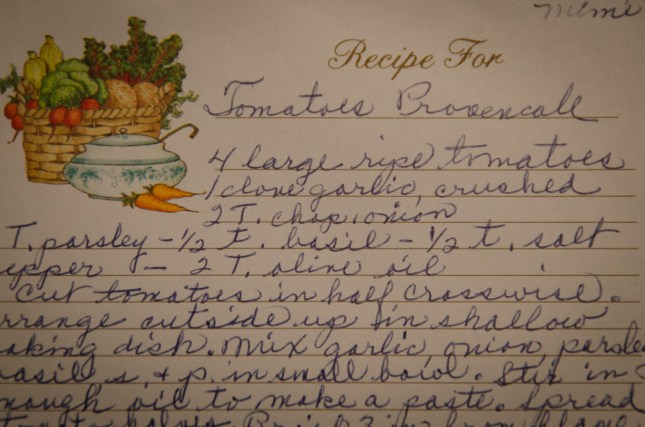 Mimi
Recipe For
Tomatoes Provencale
4 large ripe tomatoes
1 clove garlic, crushed
2 T. chop. onion
T. parsley - 1/2 t. basil - 1/2 t. salt
epper - 2 T. olive oil
Cut tomatoes in half crosswise.
rrange cutside up in shallow
aking dish. Mix garlic, onion, parsle
basil s. & p. in small bowl. Stir in
nough oil to make a paste. Spread
halves. from